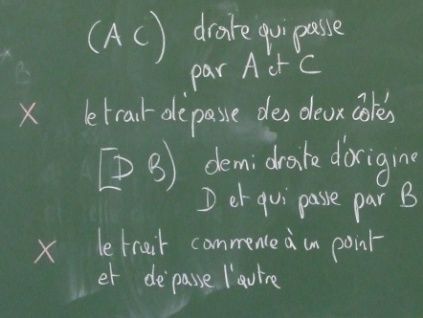 (A C) droite qui passe
par A et C
X le trait dépasse des deux côtés
[D B) demi droite d'origine
D et qui passe par B
X le trait commence à un point
et dépasse l'autre